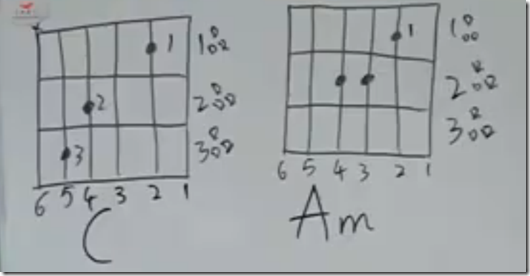 ×
1 1品
2 2品
3 3品
6 5 4 3 2 1
C
1 1品
2品
3品
6 5 4 3 2 1
Am